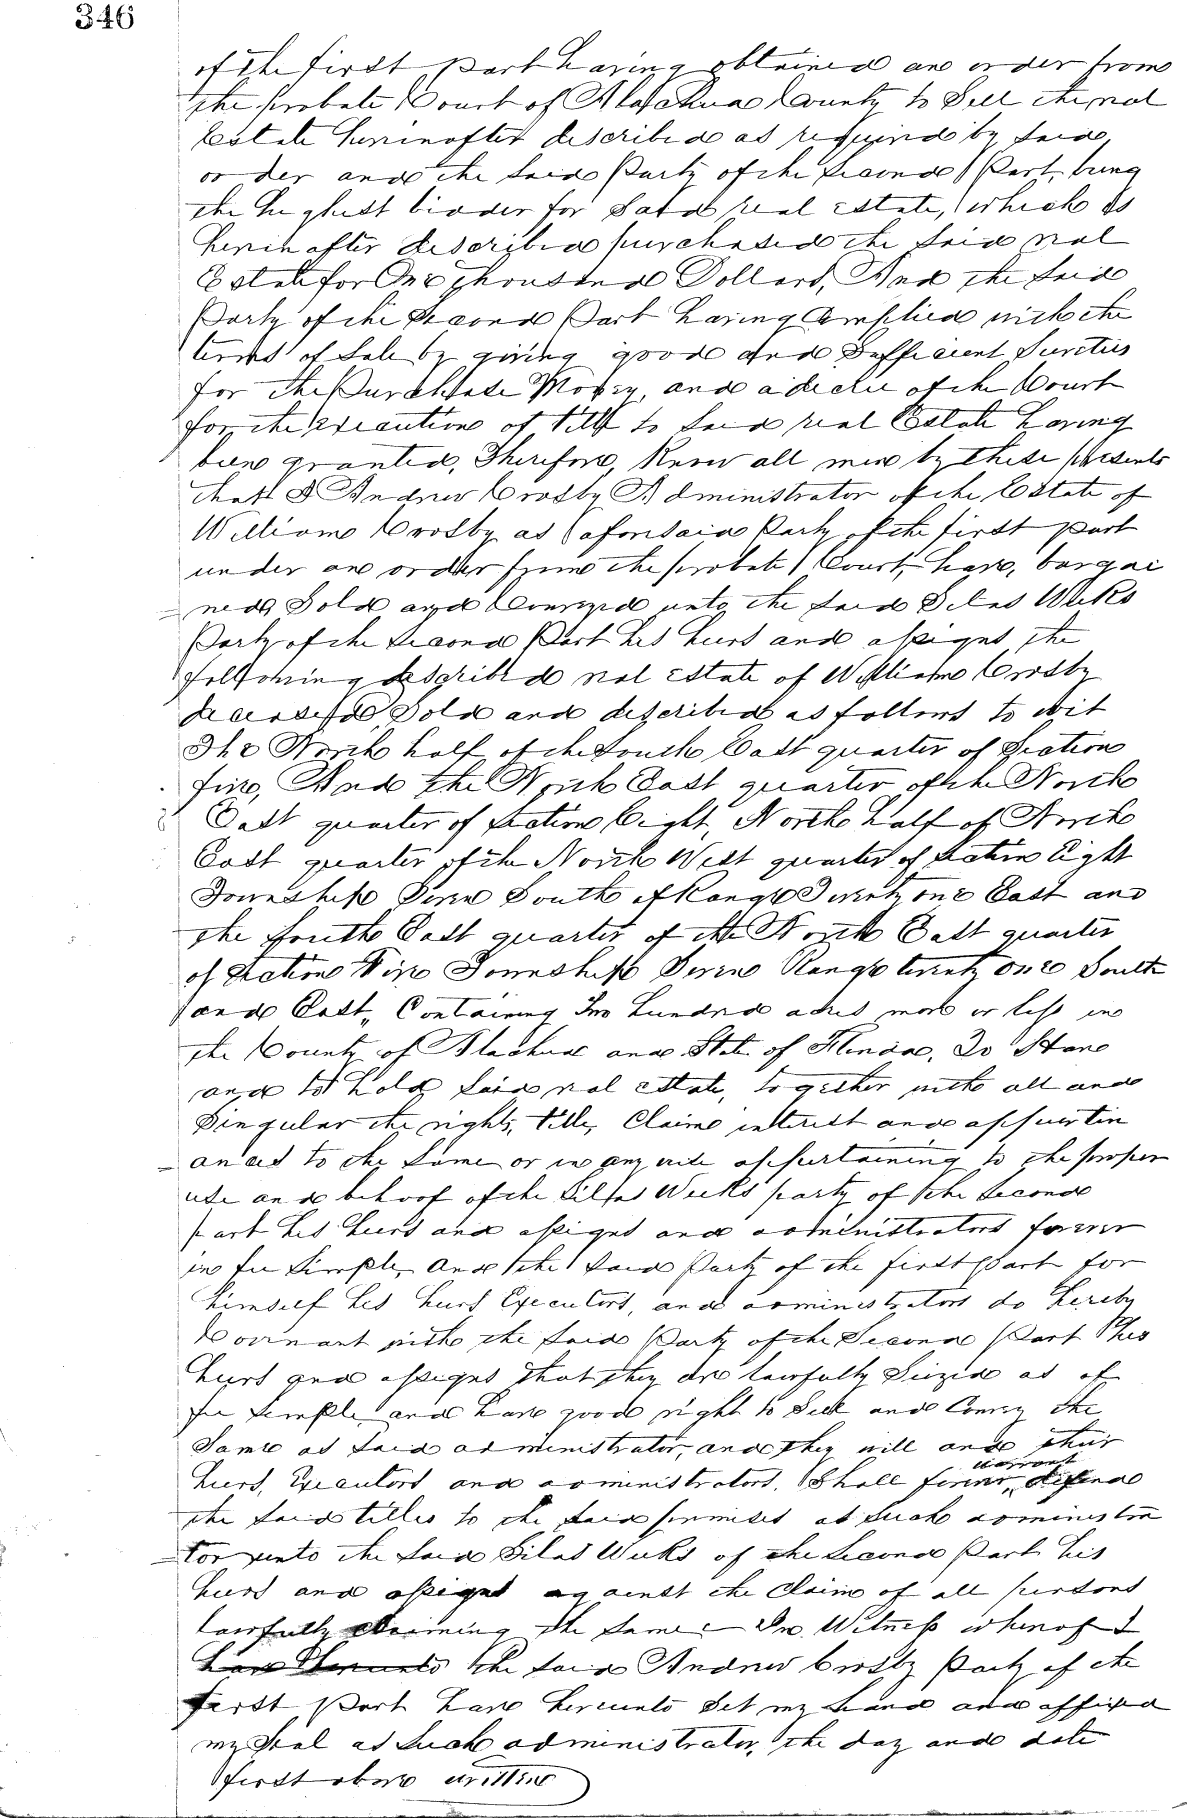 346
of the first part having obtained an order from
the probate Court of Alachua County to Sell the real
Estate hereinafter described as required by said
order and the said Party of the second Part, being
the highest bidder for said real estate, which is
herein after described purchased the said real
Estate for One Thousand Dollars, And the said
Party of the Second Part having Complied with the
terms of sale by giving good and Sufficient Sureties
for the Purchase Money, and a decree of the Court
for the execution of title to said real Estate having
been granted, Therefore, Know all men by these presents
that I Andrew Crosby Administrator of the Estate of
William Crosby as aforesaid Party of the first part
under an order from the probate Court, have, bargai
=ned, Sold and Conveyed unto the said Silas Weeks
Party of the second Part his heirs and assigns, the
following described real estate of William Crosby
deceased, Sold and described as follows to wit
The North half of the South East quarter of Section
five, And the North East quarter of the North
East quarter of section Eight, North half of North
East quarter of the North West quarter of section Eight
Township Seven South of Range Twenty one East and
the South East quarter of the North East quarter
of Section Five Township Seven Range twenty one South
and East, Containing Two hundred acres more or less in
the County of Alachua and State of Florida, To Have
and to hold said real estate, together with all and
Singular the rights, title, Claim interest and appurten
=ances to the same or in any wise appertaining to the proper
use and behoof of the Silas Weeks party of the second
part his heirs and assigns and administrators forever
in fee simple, And the said Party of the first Part for
himself his heirs Executors, and administrators do hereby
Covenant with the said Party of the Second Part his
heirs and assigns that they are lawfully Seized as of
fee simple and have good right to Sell and Convey the
Same as said administrator, and they will and their
heirs, Executors and administrators, Shall forever, warrant defend
the said titles to the said premises as such administra
=tor unto the said Silas Weeks of the second Part his
heirs and assigns against the claim of all persons
lawfully claiming the same:- In Witness whereof I
have Hereunto the said Andrew Crosby Party of the
first Part have hereunto Set my hand and affixed
my Seal as such administrator, the day and date
first above written